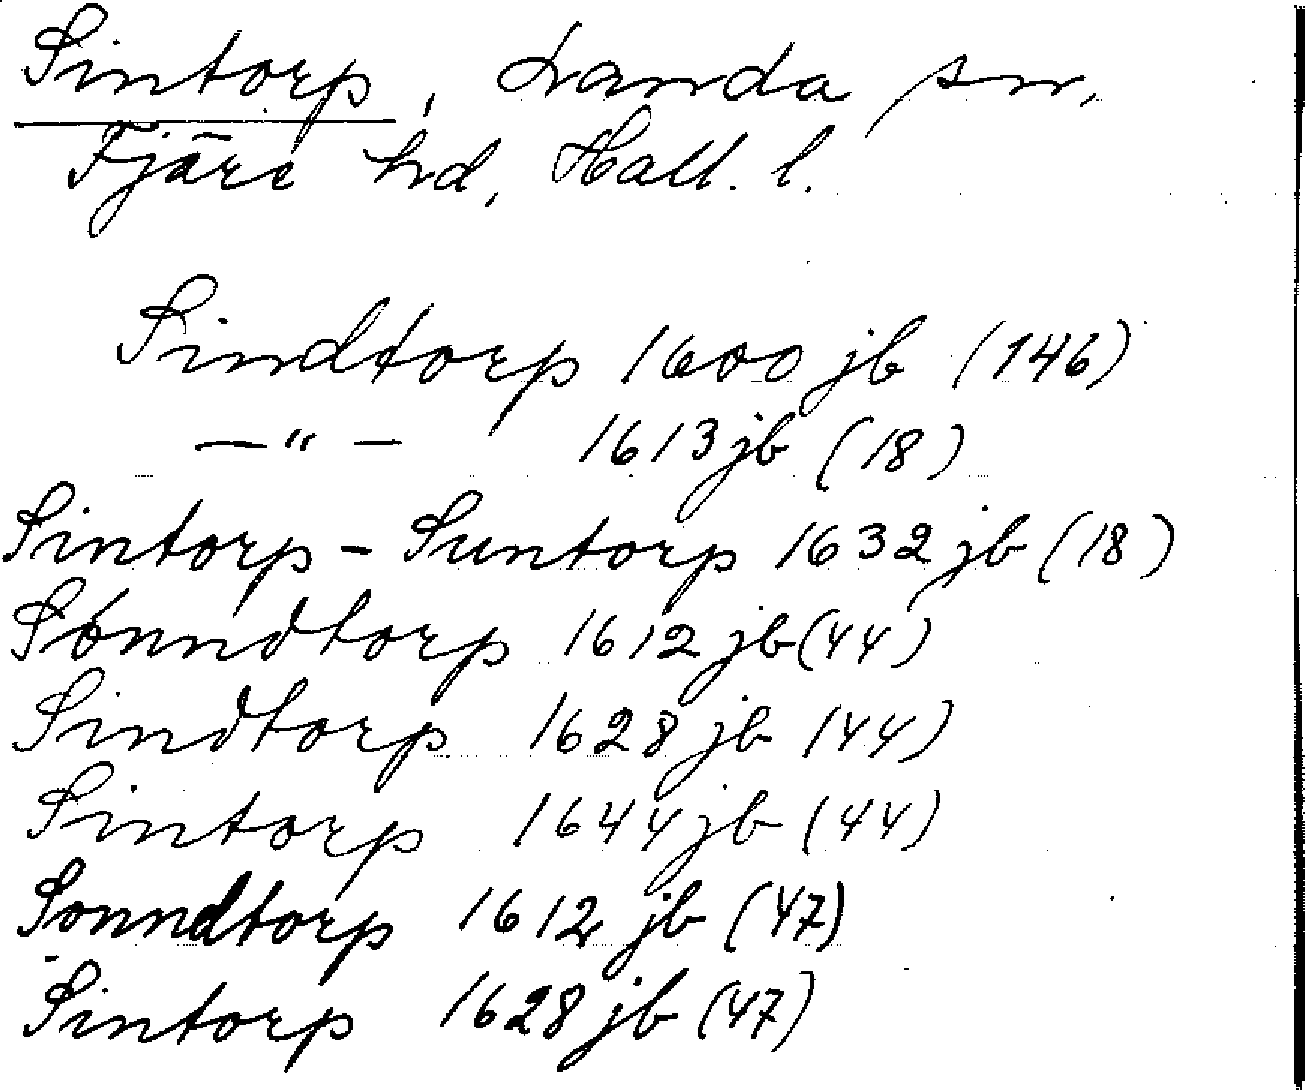 Sintorp, Landa sn,
Fjäre hd, Hall. l.
Sindtorp 1600 jb (146)
—"— 1613 jb (18)
Sintorp - Suntorp 1632 jb (18)
Sönndtorp 1612 jb (44)
Sindtorp 1628 jb (44)
Sintorp 1644 jb (44)
Sonndtorp 1612 jb (47)
Sintorp 1628 jb (47)